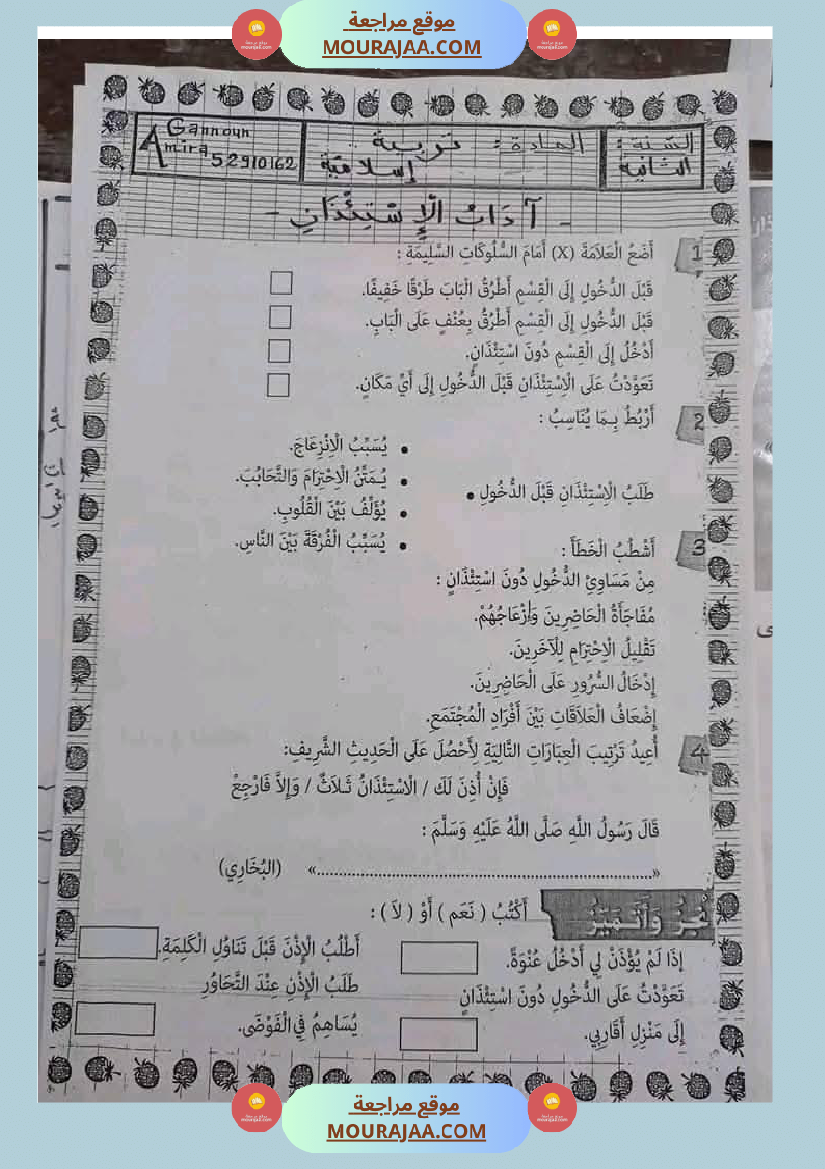 موقع مراجعة
MOURAJAA.COM
السنة : الثانية
المادة : تربية إسلامية
Gannoun
Amira 52910162
- آدَابُ الْإِسْتِئْذَانِ -
1 أَضَعُ الْعَلاَمَةَ (X) أَمَامَ السُّلُوكَاتِ السَّلِيمَةِ :
قَبْلَ الدُّخُولِ إِلَى الْقِسْمِ أَطْرُقُ الْبَابَ طَرْقًا خَفِيفًا.
قَبْلَ الدُّخُولِ إِلَى الْقِسْمِ أَطْرُقُ بِعُنْفٍ عَلَى الْبَابِ.
أَدْخُلُ إِلَى الْقِسْمِ دُونَ اسْتِئْذَانٍ.
تَعَوَّدْتُ عَلَى الْاِسْتِئْذَانِ قَبْلَ الدُّخُولِ إِلَى أَيِّ مَكَانٍ.
2 أَرْبُطُ بِمَا يُنَاسِبُ :
• يُسَبِّبُ الْاِنْزِعَاجَ.
• يُمَتِّنُ الْاِحْتِرَامَ وَالتَّحَابُبَ.
طَلَبُ الْاِسْتِئْذَانِ قَبْلَ الدُّخُولِ •
• يُؤَلِّفُ بَيْنَ الْقُلُوبِ.
• يُسَبِّبُ الْفُرْقَةَ بَيْنَ النَّاسِ.
3 أَشْطُبُ الْخَطَأَ :
مِنْ مَسَاوِئِ الدُّخُولِ دُونَ اسْتِئْذَانٍ :
مُفَاجَأَةُ الْحَاضِرِينَ وَإِزْعَاجُهُمْ.
تَقْلِيلُ الْاِحْتِرَامِ لِلْآخَرِينَ.
إِدْخَالُ السُّرُورِ عَلَى الْحَاضِرِينَ.
إِضْعَافُ الْعَلاَقَاتِ بَيْنَ أَفْرَادِ الْمُجْتَمَعِ.
4 أُعِيدُ تَرْتِيبَ الْعِبَارَاتِ التَّالِيَةِ لِأَحْصُلَ عَلَى الْحَدِيثِ الشَّرِيفِ:
فَإِنْ أُذِنَ لَكَ / الْاِسْتِئْذَانُ ثَلاَثٌ / وَإِلاَّ فَارْجِعْ
قَالَ رَسُولُ اللَّهِ صَلَّى اللَّهُ عَلَيْهِ وَسَلَّمَ :
«............................................................» (البُخَارِي)
وَأَتَمَيَّزُ
أَكْتُبُ ( نَعَم ) أَوْ ( لاَ ) :
إِذَا لَمْ يُؤْذَنْ لِي أَدْخُلُ عُنْوَةً.
أَطْلُبُ الْإِذْنَ قَبْلَ تَنَاوُلِ الْكَلِمَةِ.
تَعَوَّدْتُ عَلَى الدُّخُولِ دُونَ اسْتِئْذَانٍ
إِلَى مَنْزِلِ أَقَارِبِي.
طَلَبُ الْإِذْنِ عِنْدَ التَّحَاوُرِ
يُسَاهِمُ فِي الْفَوْضَى.
موقع مراجعة
MOURAJAA.COM